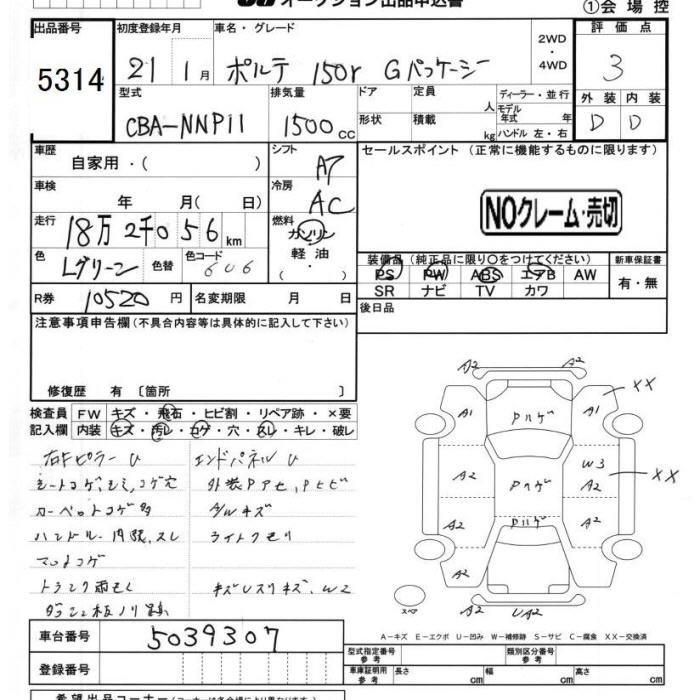 オークション出品申込書
①会場控
出品番号 初度登録年月 車名・グレード 2WD・4WD 評価点
5314 21 1月 ポルテ 150r Gパッケージ 3
型式 排気量 ドア 定員 人 ディーラー・並行 外装 内装
CBA-NNP11 1500cc 形状 積載 kg モデル年式 年 ハンドル 左・右 D D
車歴 自家用・( ) シフト AT セールスポイント (正常に機能するものに限ります)
車検 年 月( 日) 冷房 AC
NOクレーム・売切
走行 18万2千056km 燃料 ガソリン
軽油
色 Lグリーン 色替 色コード 606 ( ・ )
装備品 (純正品に限り○をつけてください) 新車保証書
PS PW ABS エアB AW 有・無
SR ナビ TV カワ
R券 10520円 名変期限 月 日 後日品
注意事項申告欄(不具合内容等は具体的に記入して下さい)
修復歴 有〔箇所 〕
検査員 FW キズ・飛石・ヒビ割・リペア跡・×要
記入欄 内装 キズ・汚レ・コゲ・穴・スレ・キレ・破レ
右Fピラー U エンドパネル U
シートコゲ、シミ、コゲ穴
カーペットコゲ多 A/Wキズ
ライトクモリ
トランク雨もく
A2 A2
A1 Pハゲ A1 XX
A2 Pハゲ W3 A2 XX
A2 Pハゲ A2
A2 A2
スペア A2 UA2
A-キズ E-エクボ U-凹み W-補修跡 S-サビ C-腐食 XX-交換済
車台番号 5039307
登録番号
型式指定番号 参考 類別区分番号 参考
車庫証明用 参考 長さ cm 幅 cm 高さ cm
希望出品コーナー(コーナーは各会場により異なります)